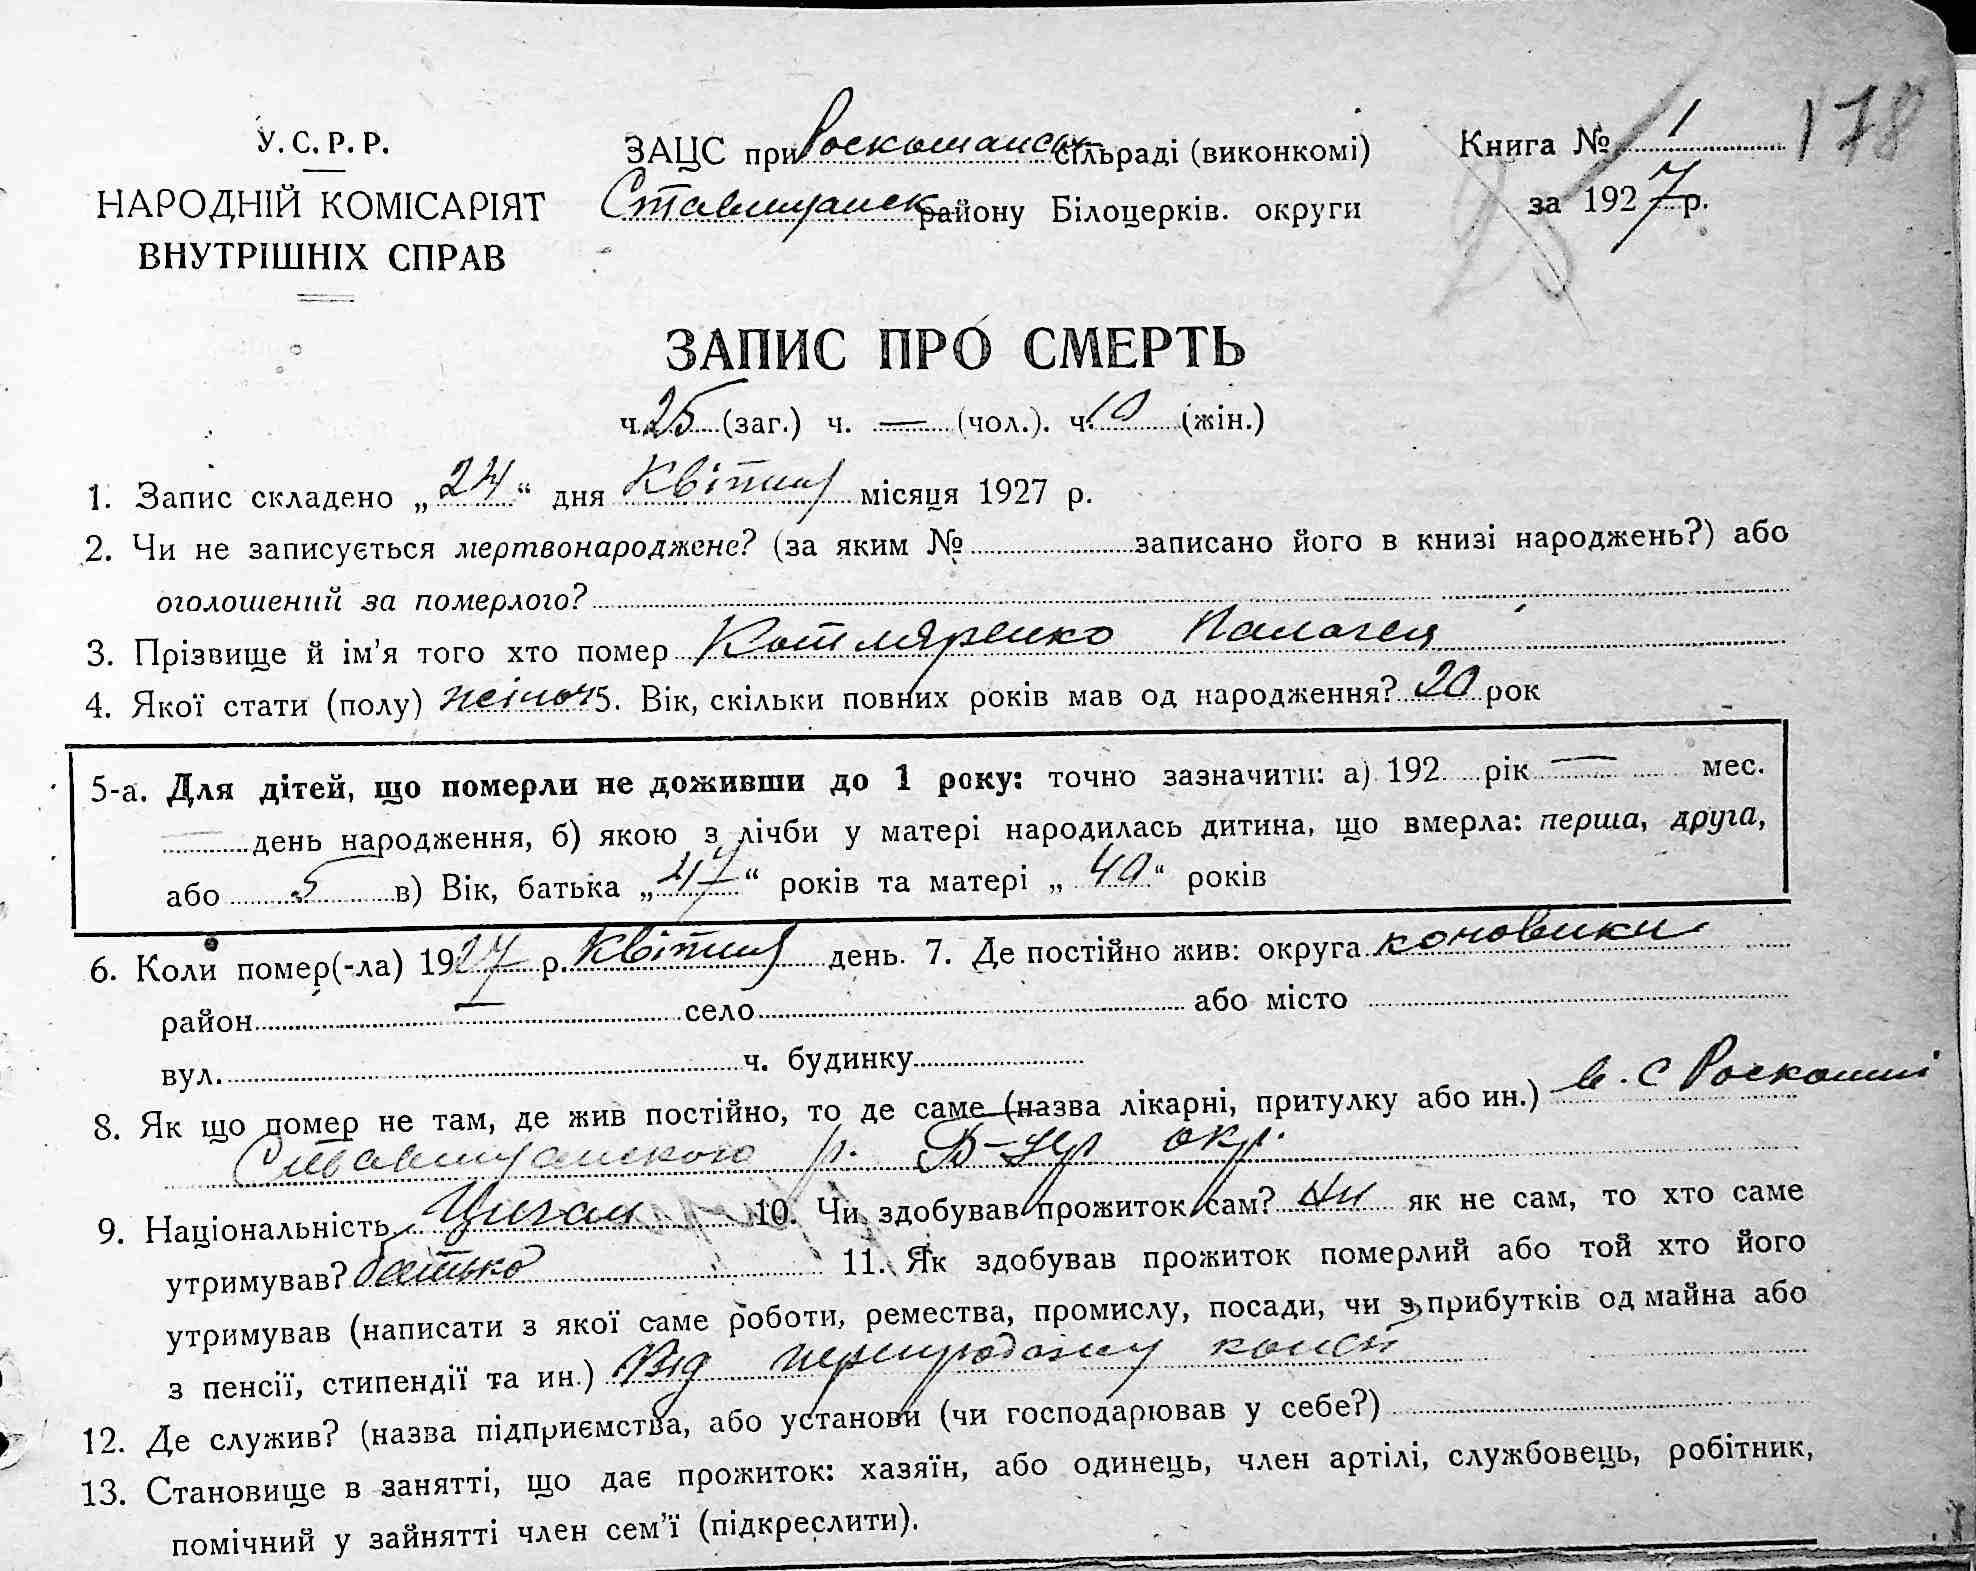 У. С. Р. Р.
НАРОДНІЙ КОМІСАРІЯТ
ВНУТРІШНІХ СПРАВ
ЗАЦС при Роскошанськ сільраді (виконкомі)
Ставищанск району Білоцерків. округи
Книга № 1
за 1927 р.
178
25
ЗАПИС ПРО СМЕРТЬ
ч. 25 (заг.) ч. — (чол.). ч. 10 (жін.)
1. Запис складено „24“ дня Квітня місяця 1927 р.
2. Чи не записується мертвонароджене? (за яким № записано його в книзі народжень?) або
оголошений за померлого?
3. Прізвище й ім'я того хто помер Котляренко Палагея
4. Якої стати (полу) жіноч 5. Вік, скільки повних років мав од народження? 20 рок
5-а. Для дітей, що померли не доживши до 1 року: точно зазначити: а) 192 рік — мес.
— день народження, б) якою з лічби у матері народилась дитина, що вмерла: перша, друга,
або 5 в) Вік, батька „47“ років та матері „40“ років
6. Коли помер(-ла) 1927 р. Квітня день. 7. Де постійно жив: округа кочовики
район — село або місто
вул. ч. будинку
8. Як що помер не там, де жив постійно, то де саме (назва лікарні, притулку або ин.) в. с Роскошні
Ставищанского р. Б-Цер окр.
9. Національність Циган 10. Чи здобував прожиток сам? ни як не сам, то хто саме
утримував? батько 11. Як здобував прожиток померлий або той хто його
утримував (написати з якої саме роботи, ремества, промислу, посади, чи з прибутків од майна або
з пенсії, стипендії та ин.) Від перепродажу коней
12. Де служив? (назва підприємства, або установи (чи господарював у себе?)
13. Становище в занятті, що дає прожиток: хазяїн, або одинець, член артілі, службовець, робітник,
помічний у зайнятті член сем'ї (підкреслити).